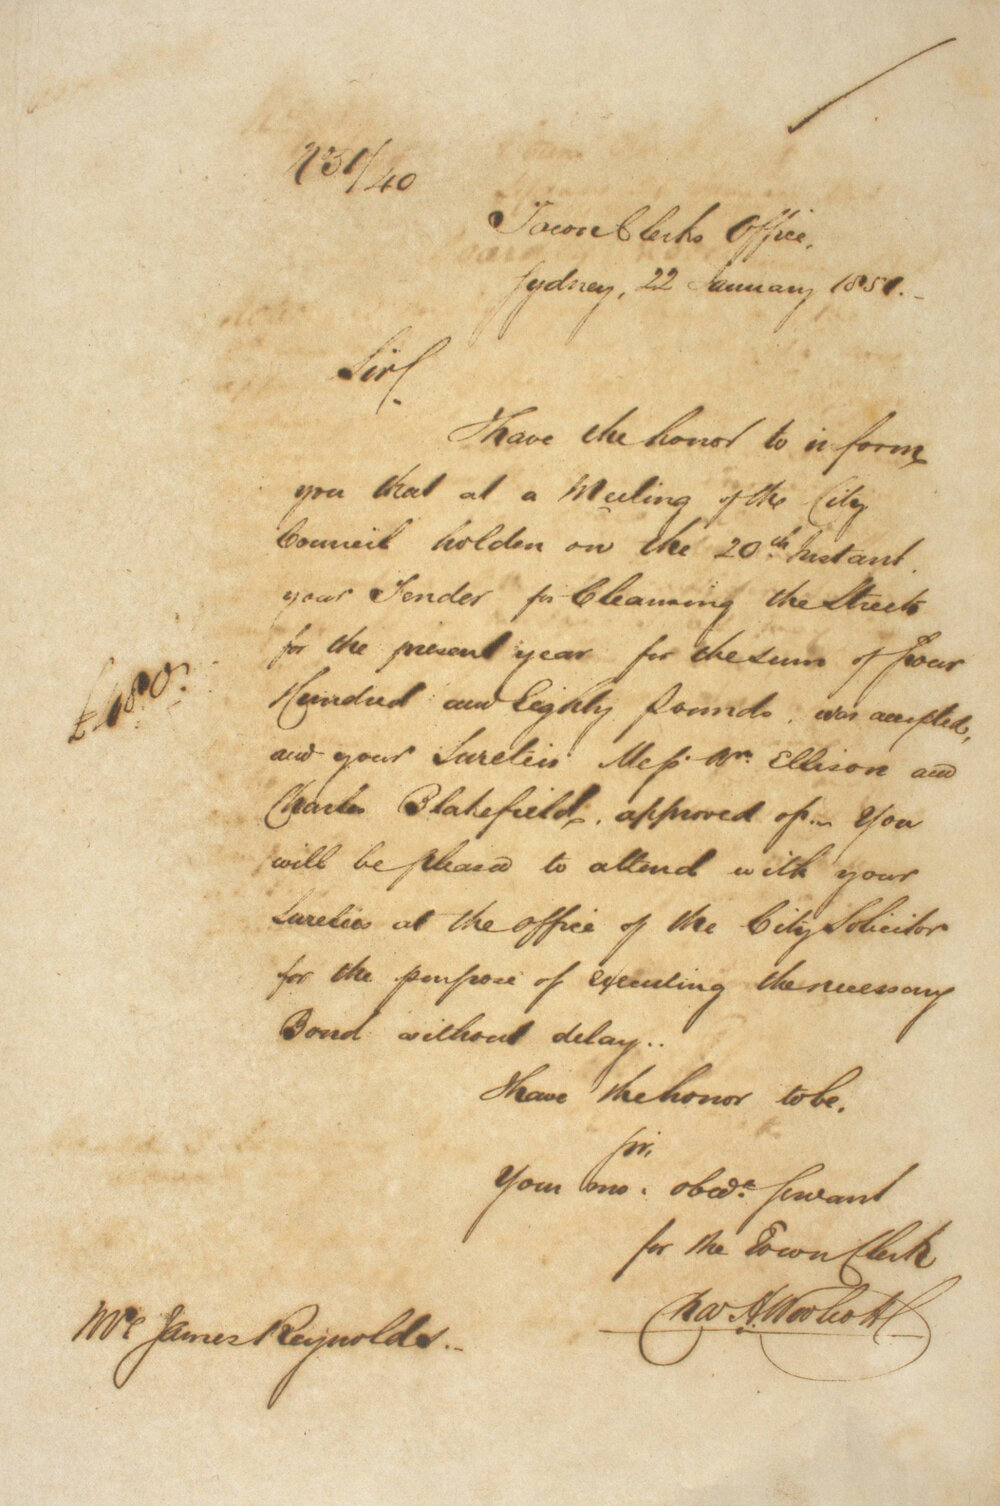 No 51/40
Town Clerks Office,
Sydney, 22 January 1851.
Sir
I have the honor to inform
you that at a Meeting of the City
Council holden on the 20th Instant
your Tender for Cleansing the Streets
for the present year for the sum of Four
Hundred and Eighty Pounds, was accepted,
£480.
and your Sureties Messrs Wm. Ellison and
Charles Blakefield, approved of. You
will be pleased to attend with your
Sureties at the office of the City Solicitor
for the purpose of executing the necessary
Bond without delay..
I have the honor to be,
Sir,
Your mo. obedt. Servant
for the Town Clerk
Chas H. Woolcott
Mr James Reynolds.